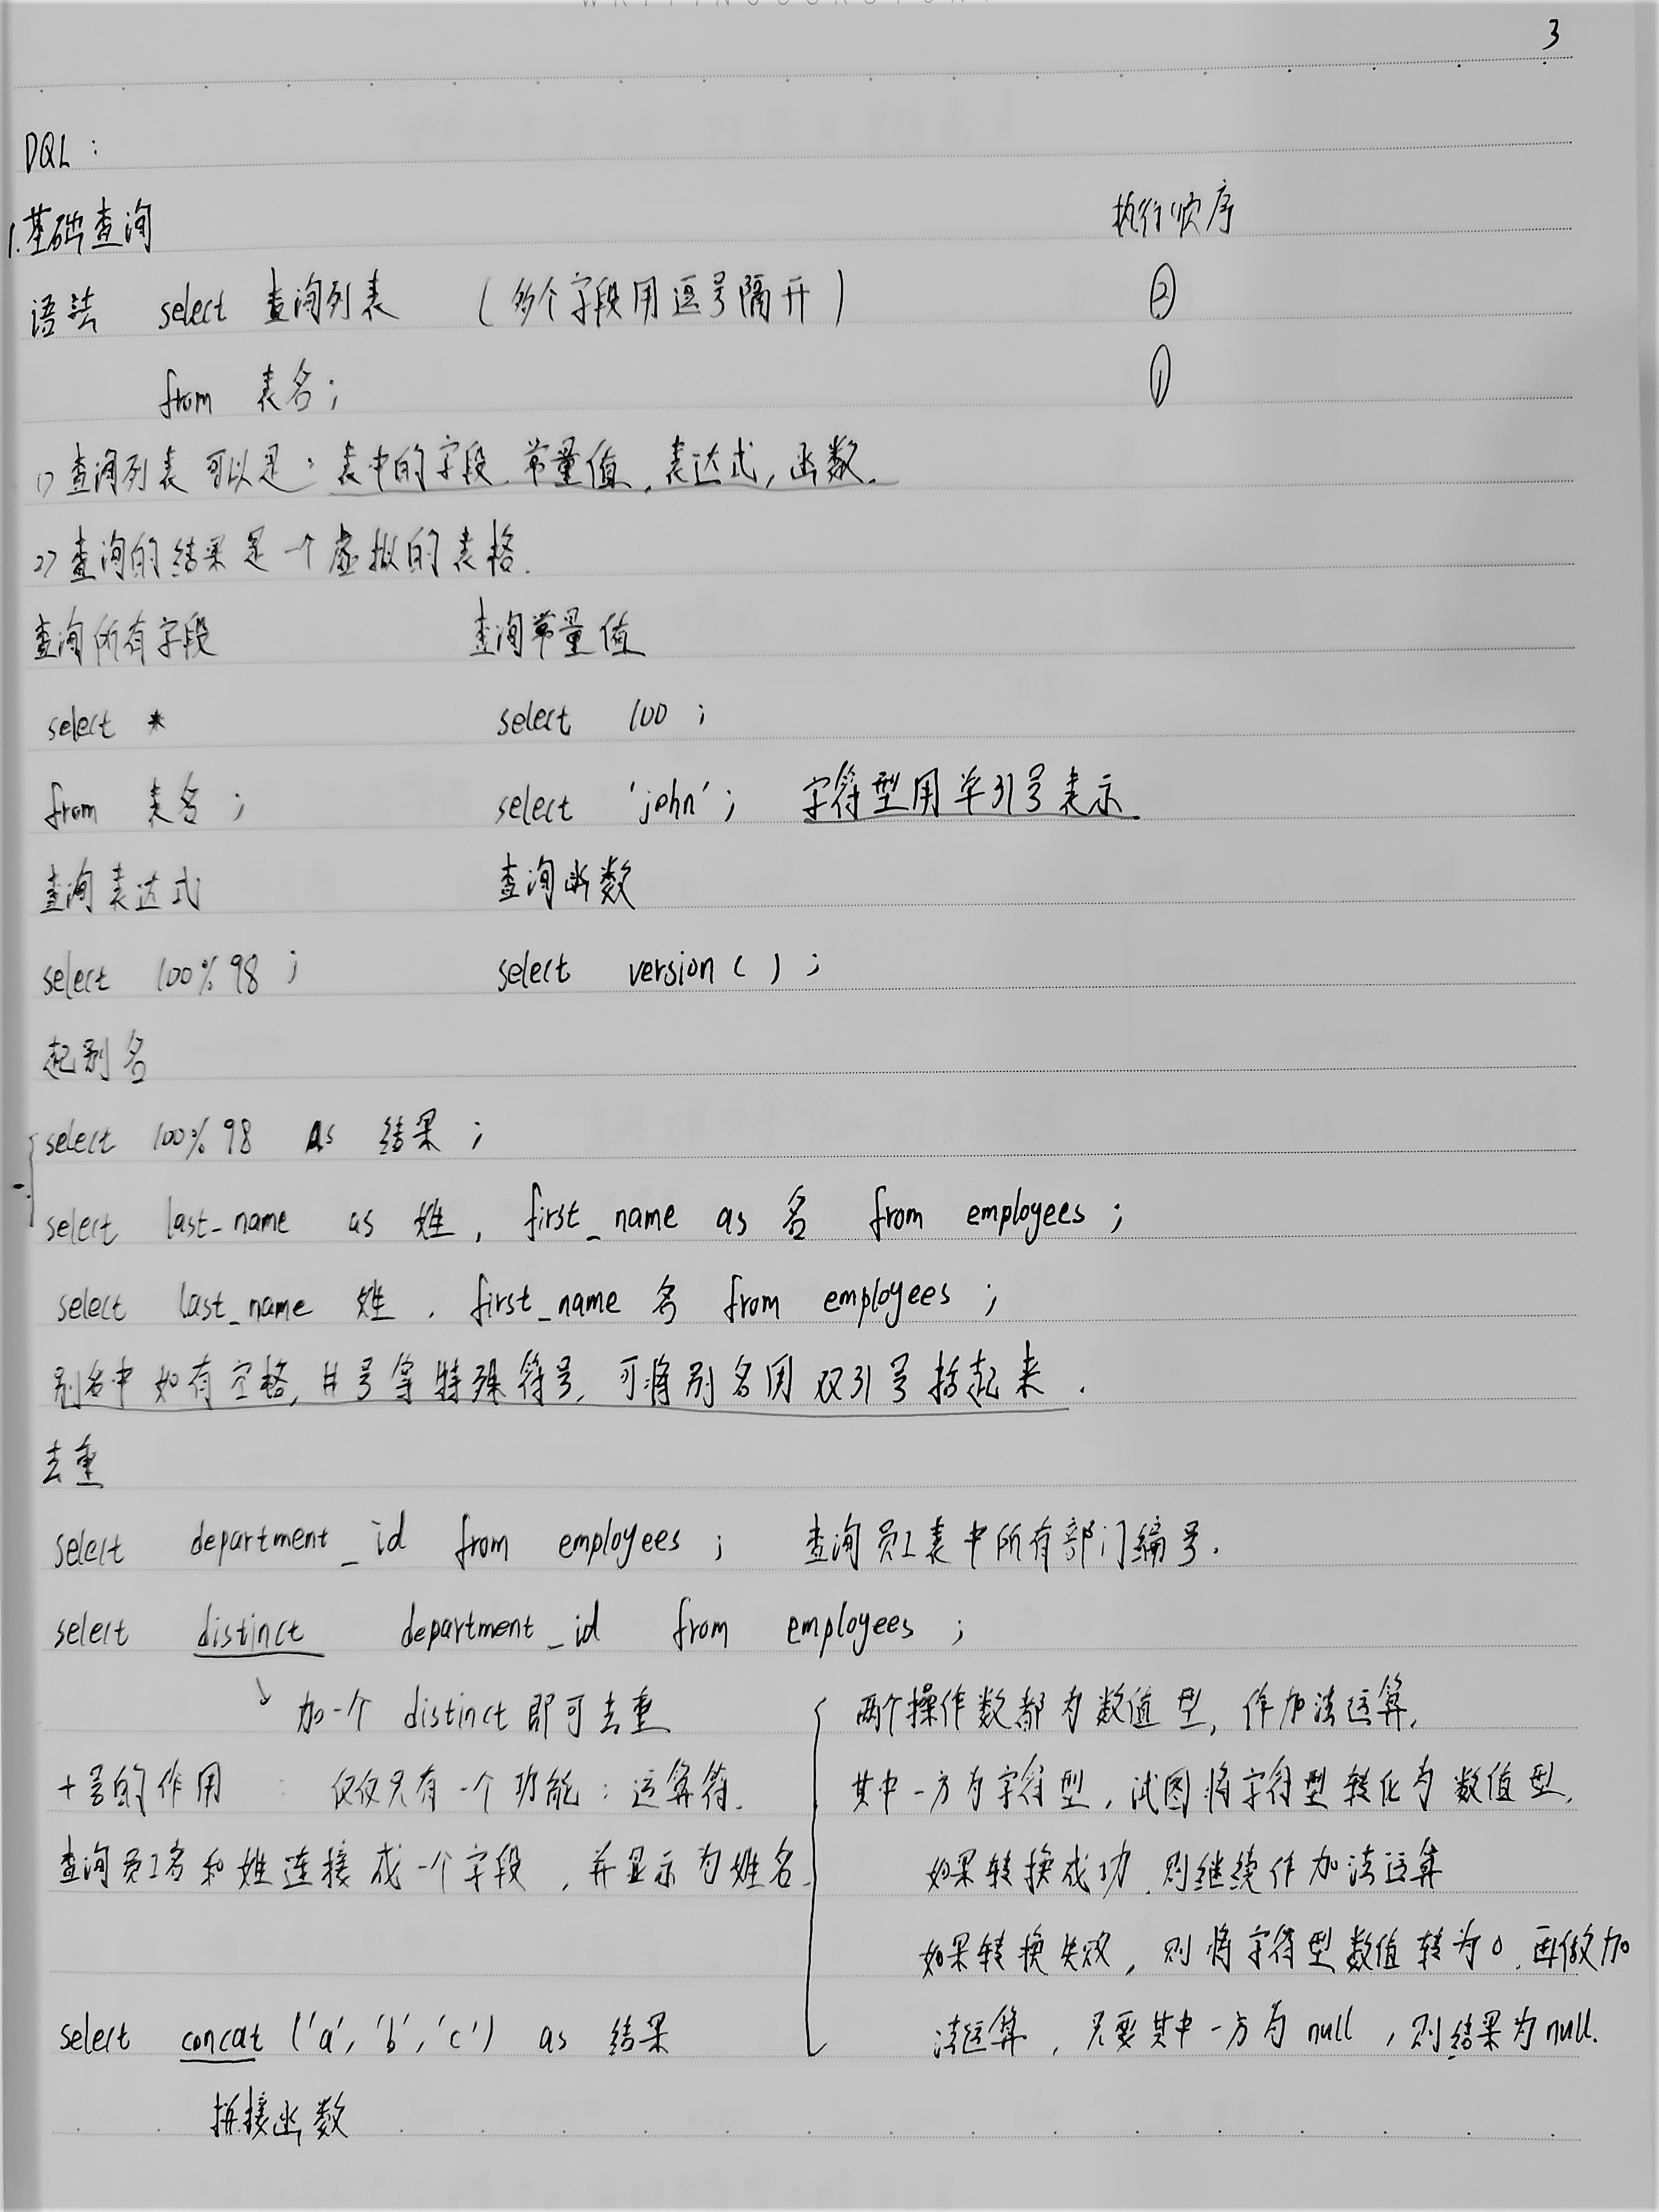 3
DQL：
1.基础查询 执行顺序
语法 select 查询列表 （多个字段用逗号隔开） ②
from 表名； ①
1）查询列表可以是：表中的字段、常量值，表达式，函数.
2）查询的结果是一个虚拟的表格.
查询所有字段 查询常量值
select * select 100 ;
from 表名 ; select 'john' ; 字符型用单引号表示
查询表达式 查询函数
select 100%98 ; select version( ) ;
起别名
select 100%98 As 结果 ;
select last_name as 姓 , first_name as 名 from employees ;
select last_name 姓 , first_name 名 from employees ;
别名中如有空格,井号等特殊符号,可将别名用双引号括起来.
去重
select department_id from employees ; 查询员工表中所有部门编号.
select distinct department_id from employees ;
↘ 加一个 distinct 即可去重
+号的作用 : 仅仅只有一个功能：运算符.
查询员工名和姓连接成一个字段，并显示为姓名.
select concat ('a', 'b', 'c') as 结果
拼接函数
两个操作数都为数值型，作加法运算.
其中一方为字符型，试图将字符型转化为数值型.
如果转换成功,则继续作加法运算
如果转换失败，则将字符型数值转为0.再做加
法运算，只要其中一方为null，则结果为null.